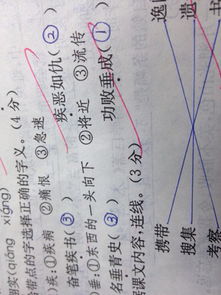 实(qiáng xiǎng)
带点的字选择正确的字义。(4分)
疾:①疾病 ②痛恨 ③急速
奋笔疾书(③) 疾恶如仇(②)
垂:①东西的一头向下 ②将近 ③流传
名垂青史(③) 功败垂成(①)
课文内容,连线。(3分)
携带 逸
搜集 遗
考察 书